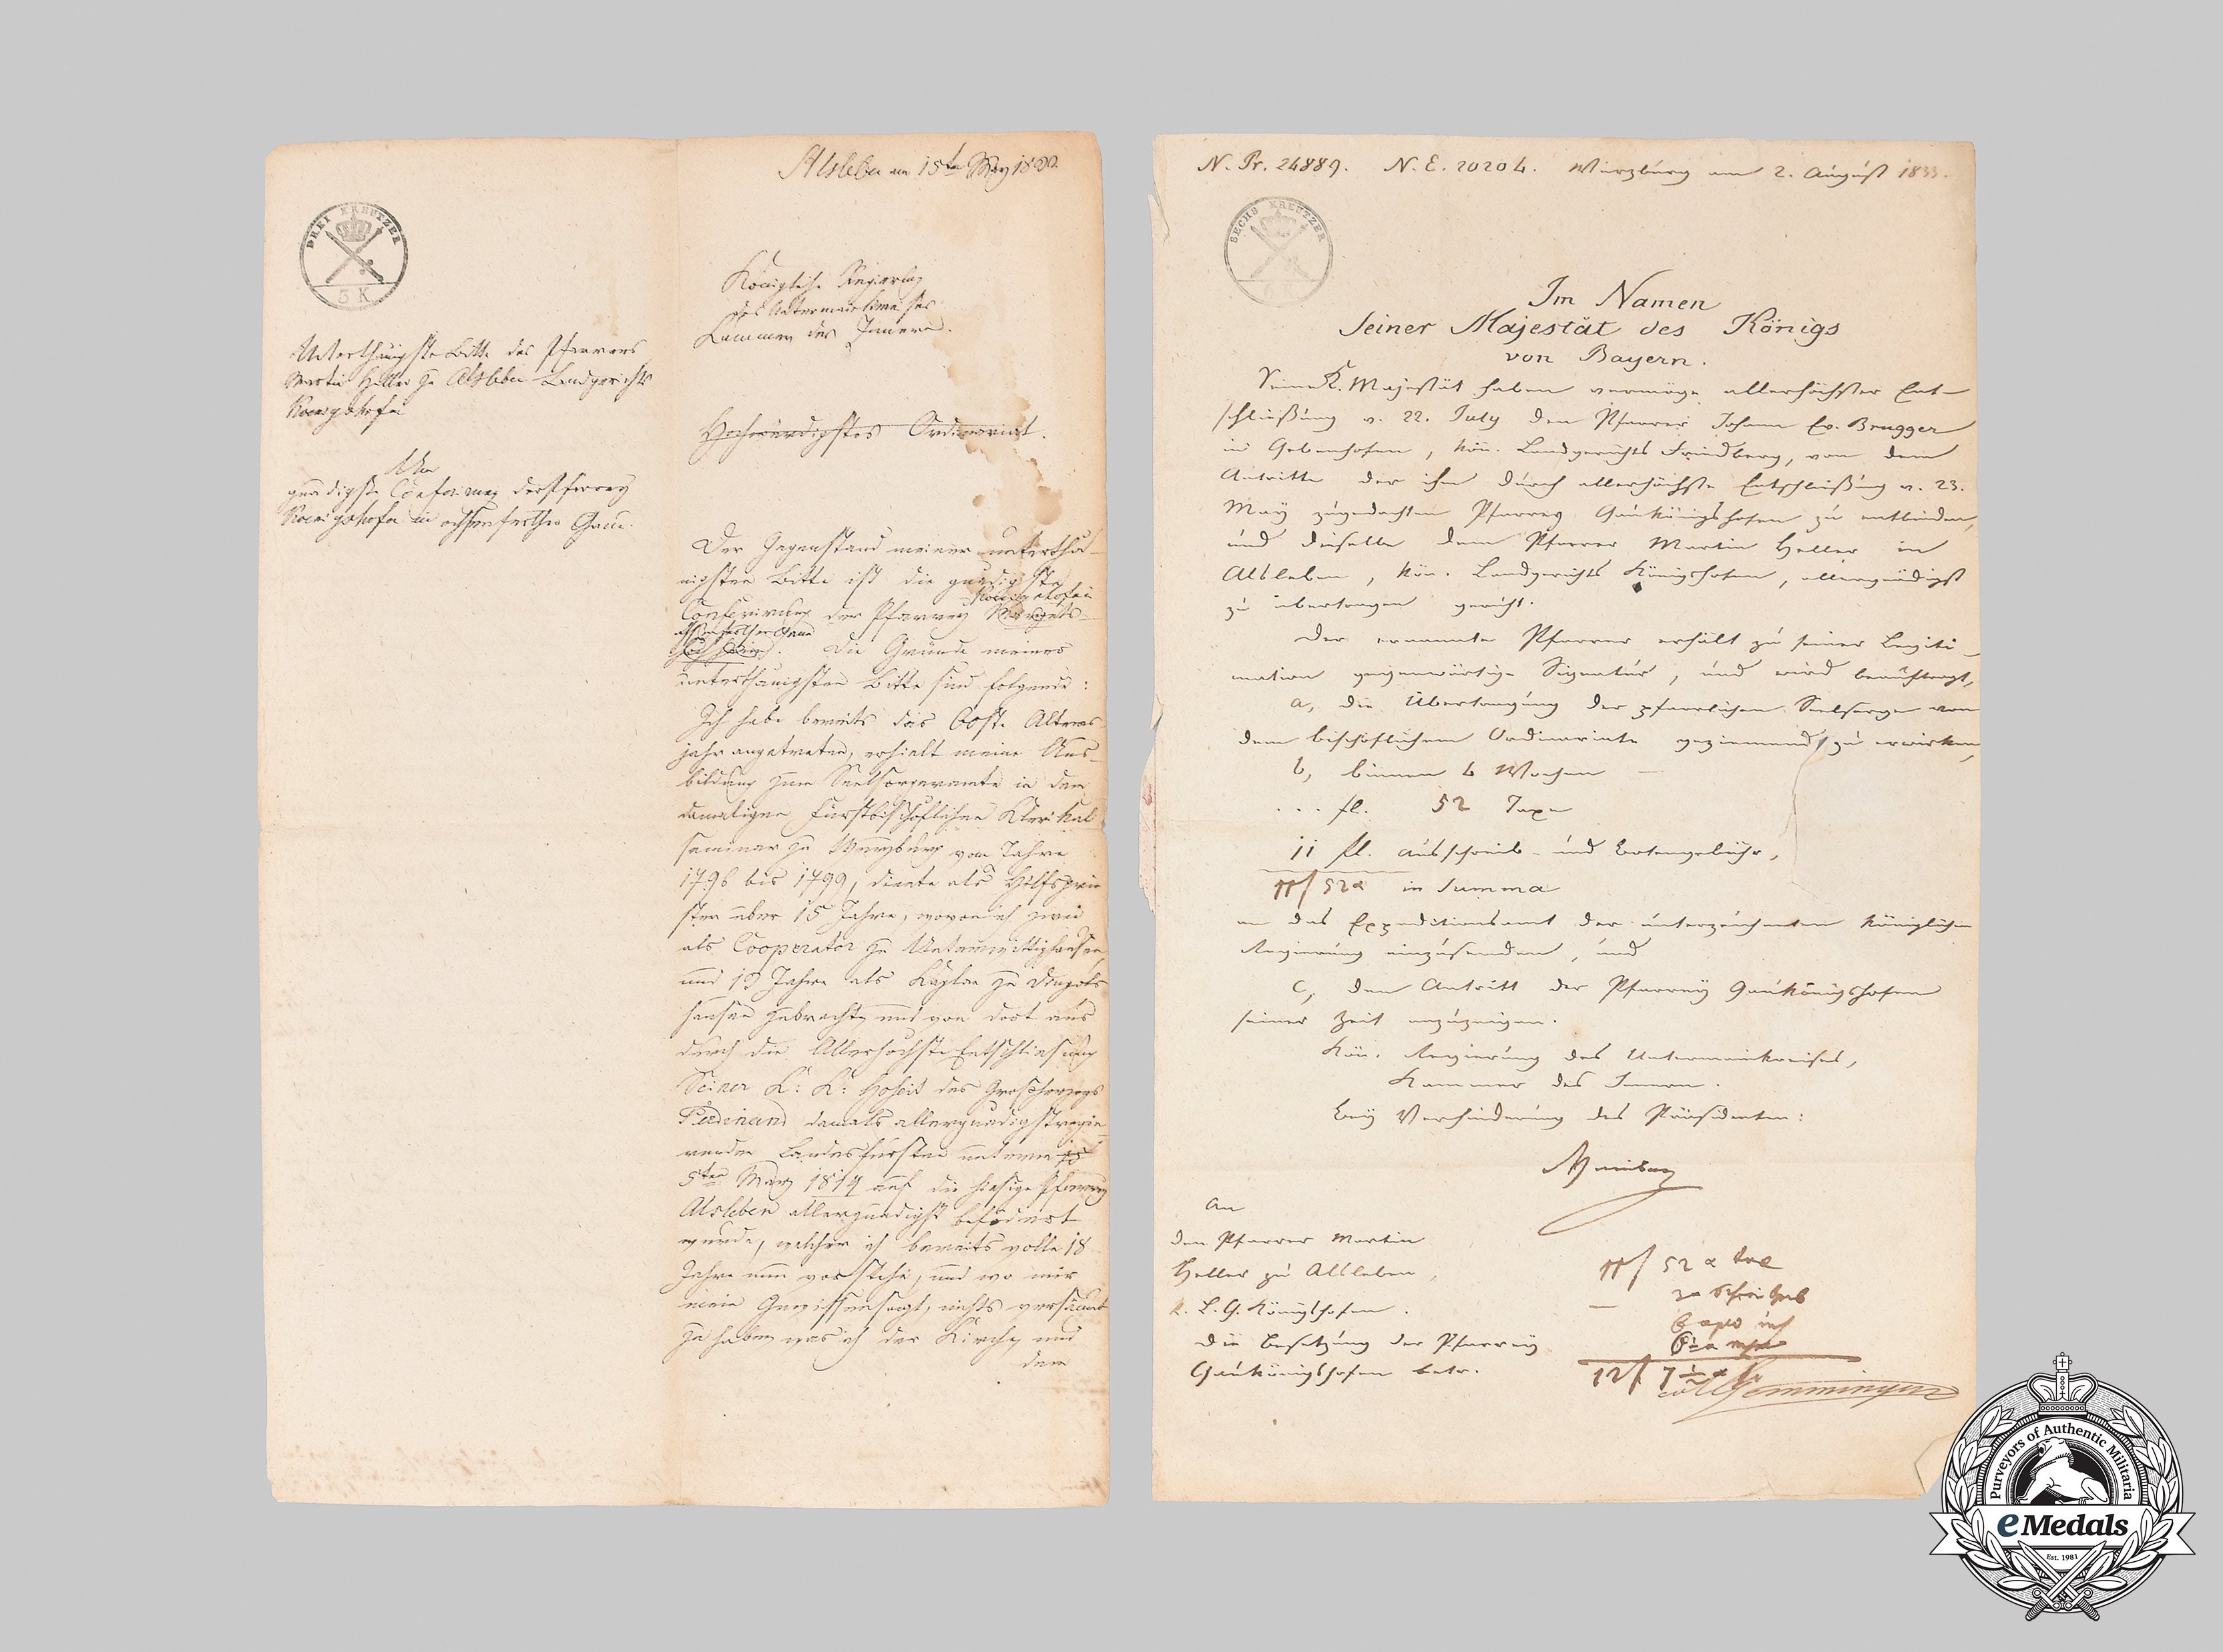 Alsleben am 15ten May
DREI KREUTZER
Königliche Regierung
des Untermainkreises
Kammer des Innern.
Unterthänigste Bitte des Pfarrers
Martin Heller zu Alsleben Landgerichts
Koenigshofen
Um
gnädigste Conferirung der Pfarrey
Koenigshofen im ochsenfurther Gaue.
Hochwürdigstes Ordinariat.
Der Gegenstand meiner unterthä-
nigsten Bitte ist die gnädigste
Koenigshofen
Conferirung der Pfarrey
ochsenfurther Gaue
Die Gründe meiner
unterthänigsten Bitte sind folgende:
Ich habe bereits das 60ste Alters-
jahr angetreten, erhielt meine Aus-
bildung zum Seelsorgeramte in dem
damaligen Fürstbischöflichen Klerikal
seminar zu Würzburg vom Jahre
1796 bis 1799, diente als Hilfsprie
ster über 15 Jahre, wovon ich zwei
als Cooperator zu Unterwittighausen
und 13 Jahre als Kaplan zu
hausen zubrachte, und von dort aus
durch die Allerhöchste Entschliesung
Seiner K: K: Hoheit des Großherzogs
Ferdinand damals allergnädigst regie-
renden Landesfürsten unterm
5ten März 1814 auf die hiesige Pfarrey
Alsleben allergnädigst befördert
wurde, welcher ich bereits volle 18
Jahre nun vorstehe, und wo mir
mein Gewissen sagt, nichts versäumt
zu haben, was ich der Kirche, und
dem
N. Pr. 24889. N. E. 20204. Würzburg am 2. August 1833.
SECHS KREUTZER
Im Namen
Seiner Majestät des Königs
von Bayern.
Seine K. Majestät haben vermöge allerhöchster Ent-
schließung v. 22. July den Pfarrer Johann Ev. Brugger
in Gebenhofen, kön. Landgerichts Friedberg, von dem
Antritte der ihm durch allerhöchste Entschließung v. 23.
May zugedachten Pfarrey Gaukönigshofen zu entbinden,
und dieselbe dem Pfarrer Martin Heller in
Alsleben, kön. Landgerichts Königshofen, allergnädigst
zu übertragen geruht.
Der ernannte Pfarrer erhält zu seiner Legiti-
mation gegenwärtige Signatur, und wird beauftragt,
a, die Übertragung der pfarrlichen Seelsorge von
dem bischöflichen Ordinariate geziemend zu erwirken,
b, binnen 4 Wochen
... fl. 52 Taxe
11 fl. Ausschreib- und Botengebühr,
11 f 52 x in Summa
an das Expeditionsamt der unterzeichneten königlichen
Regierung einzusenden, und
c, den Antritt der Pfarrey Gaukönigshofen
seiner Zeit anzuzeigen.
Kön. Regierung des Untermainkreises,
Kammer des Innern.
Bey Verhinderung des Präsidenten:
An
den Pfarrer Martin
Heller zu Alsleben,
k. L. G. Königshofen.
Die Besetzung der Pfarrey
Gaukönigshofen betr.
11 f 52 x
12 f 7
Gemmingen
Purveyors of Authentic Militaria
eMedals
Est. 1981